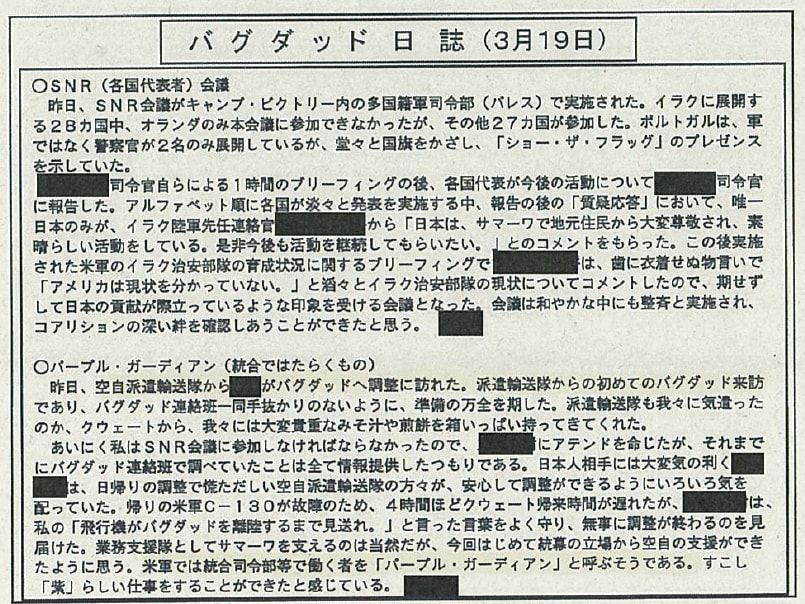 バグダッド日誌（3月19日）
〇SNR（各国代表者）会議
昨日、SNR会議がキャンプ・ビクトリー内の多国籍軍司令部（パレス）で実施された。イラクに展開す
る28カ国中、オランダのみ本会議に参加できなかったが、その他27カ国が参加した。ポルトガルは、軍
ではなく警察官が2名のみ展開しているが、堂々と国旗をかざし、「ショー・ザ・フラッグ」のプレゼンス
を示していた。
司令官自らによる1時間のブリーフィングの後、各国代表が今後の活動について 司令官
に報告した。アルファベット順に各国が淡々と発表を実施する中、報告の後の「質疑応答」において、唯一
日本のみが、イラク陸軍先任連絡官 から「日本は、サマーワで地元住民から大変尊敬され、素
晴らしい活動をしている。是非今後も活動を継続してもらいたい。」とのコメントをもらった。この後実施
された米軍のイラク治安部隊の育成状況に関するブリーフィングで は、歯に衣着せぬ物言いで
「アメリカは現状を分かっていない。」と滔々とイラク治安部隊の現状についてコメントしたので、期せず
して日本の貢献が際立っているような印象を受ける会議となった。会議は和やかな中にも整斉と実施され、
コアリションの深い絆を確認しあうことができたと思う。
〇パープル・ガーディアン（統合ではたらくもの）
昨日、空自派遣輸送隊から がバグダッドへ調整に訪れた。派遣輸送隊からの初めてのバグダッド来訪
であり、バグダッド連絡班一同手抜かりのないように、準備の万全を期した。派遣輸送隊も我々に気遣った
のか、クウェートから、我々には大変貴重なみそ汁や煎餅を箱いっぱい持ってきてくれた。
あいにく私はSNR会議に参加しなければならなかったので、 にアテンドを命じたが、それまで
にバグダッド連絡班で調べていたことは全て情報提供したつもりである。日本人相手には大変気の利く
は、日帰りの調整で慌ただしい空自派遣輸送隊の方々が、安心して調整ができるようにいろいろ気を
配っていた。帰りの米軍C－130が故障のため、4時間ほどクウェート帰来時間が遅れたが、 は、
私の「飛行機がバグダッドを離陸するまで見送れ。」と言った言葉をよく守り、無事に調整が終わるのを見
届けた。業務支援隊としてサマーワを支えるのは当然だが、今回はじめて統幕の立場から空自の支援ができ
たように思う。米軍では統合司令部等で働く者を「パープル・ガーディアン」と呼ぶそうである。すこし
「紫」らしい仕事をすることができたと感じている。